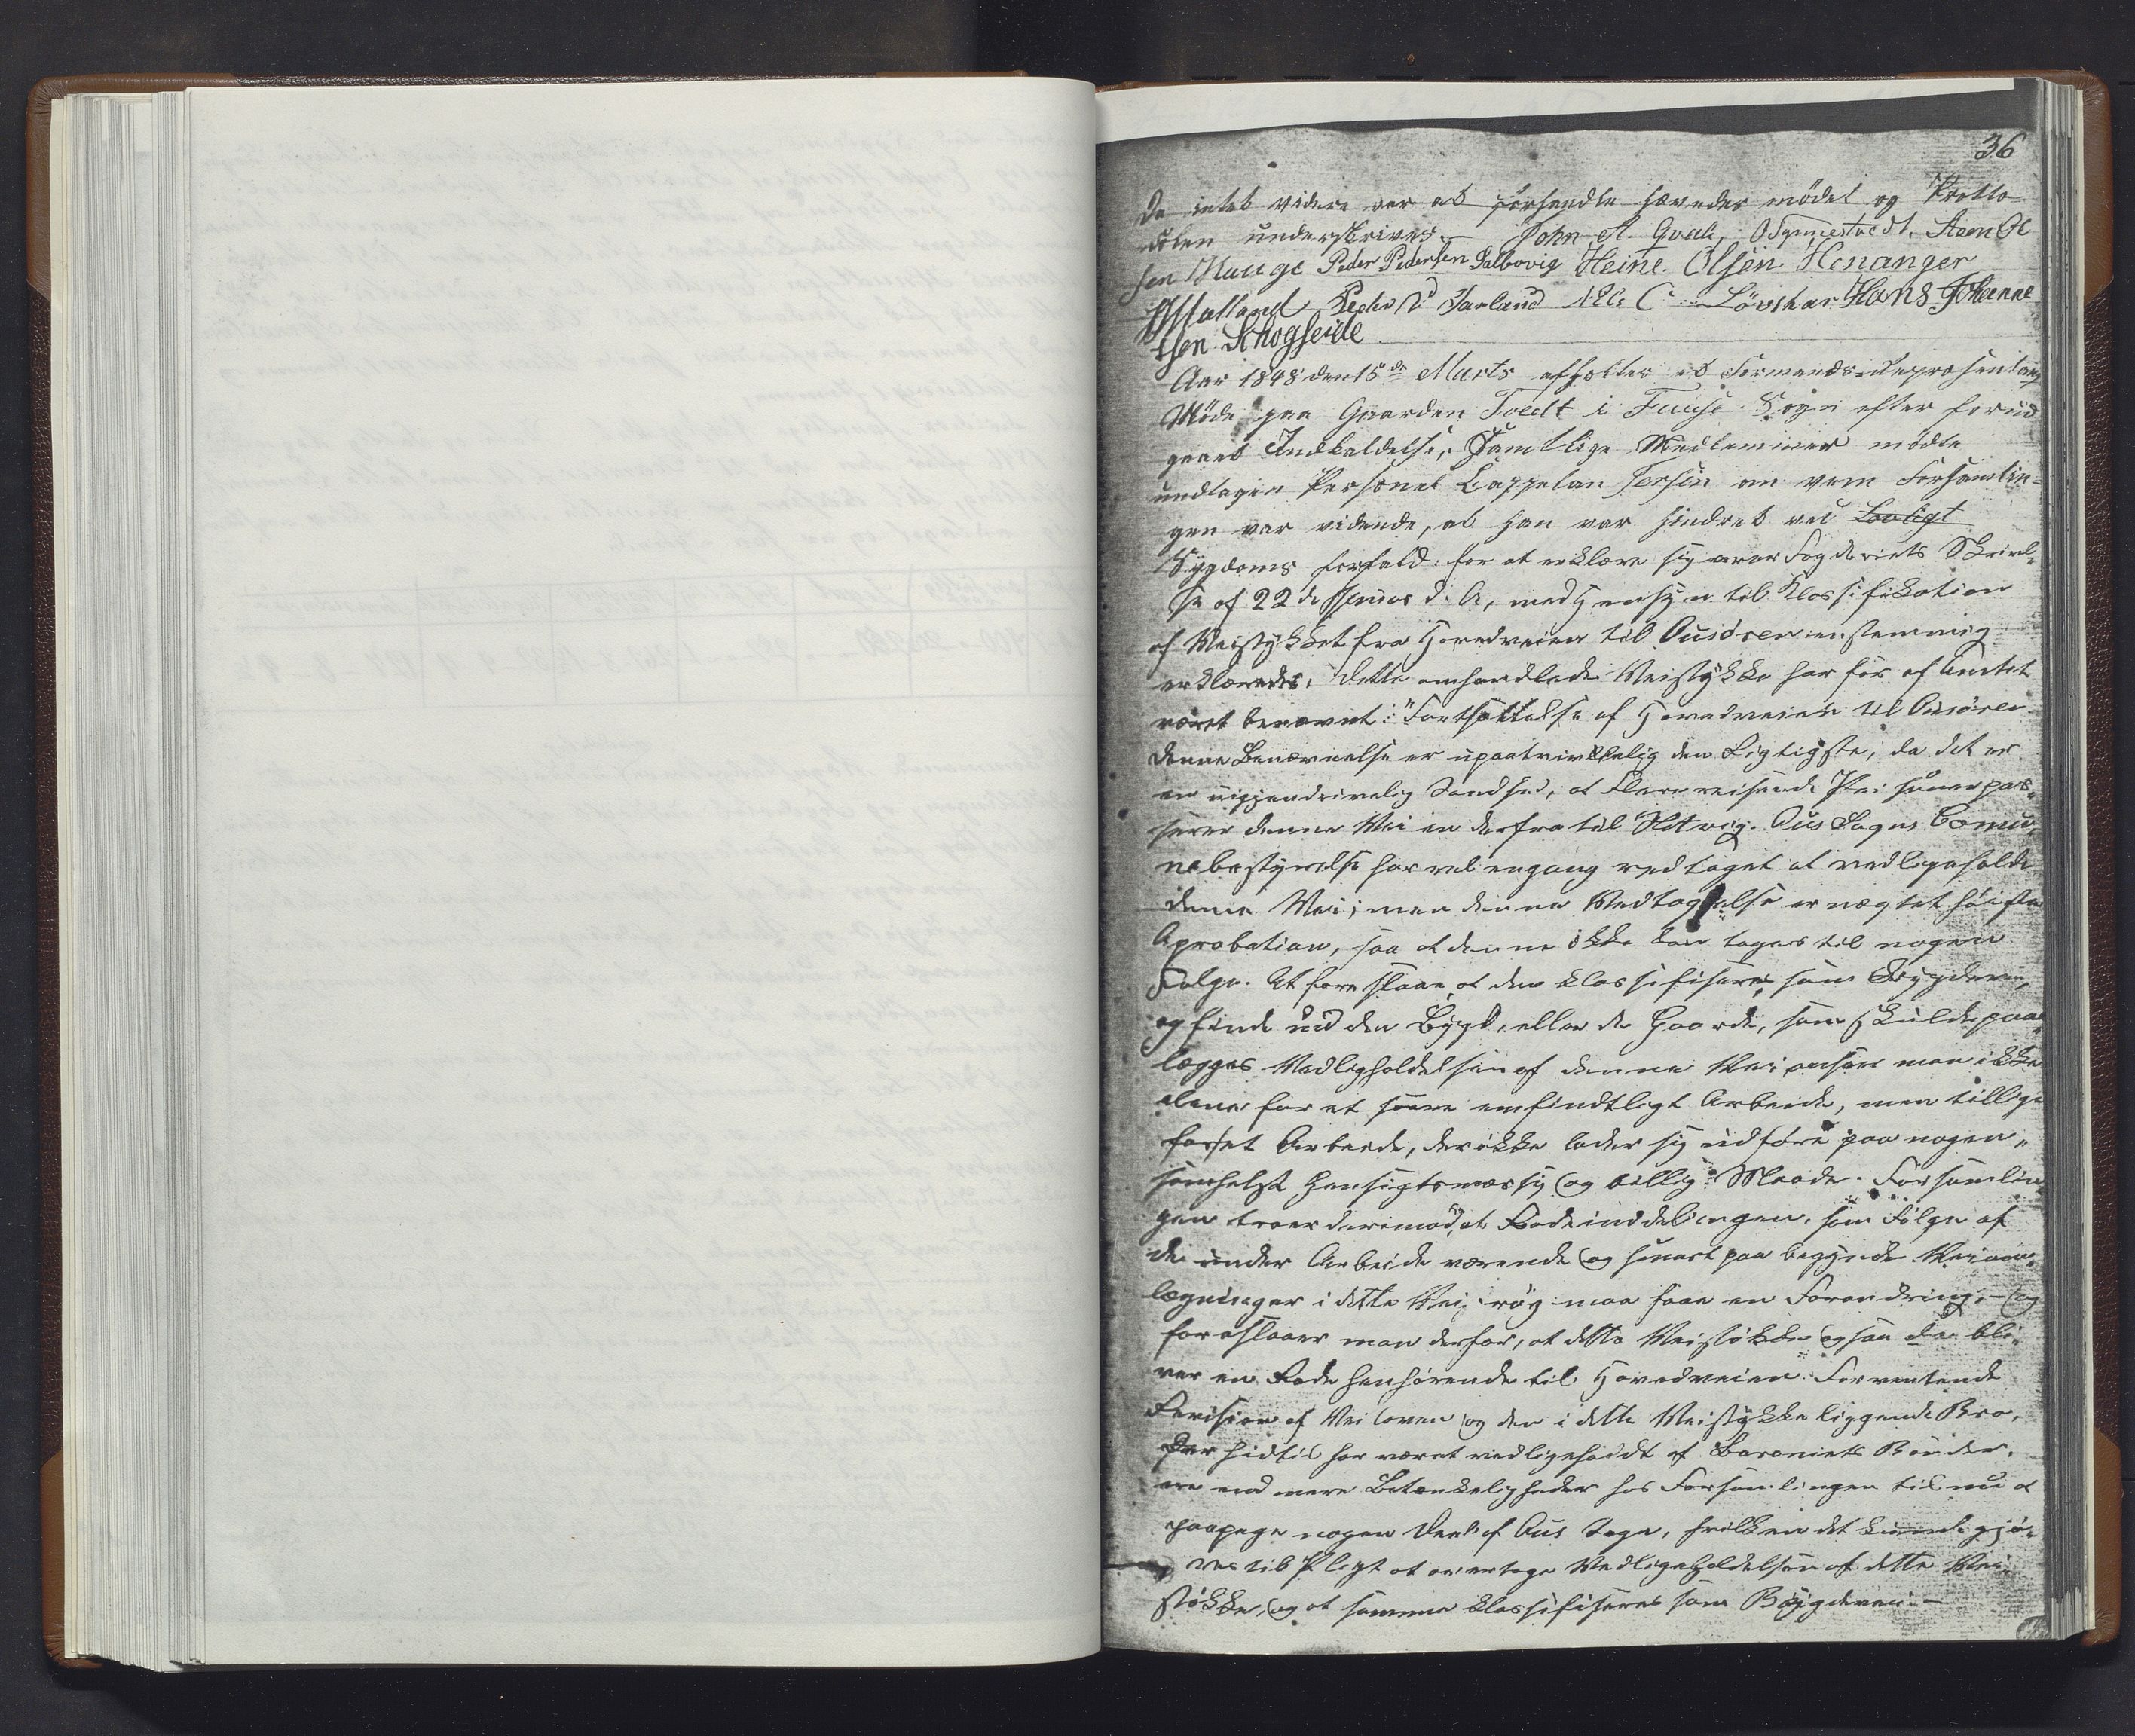 36
Da intet videre var at forhandle hævedes mødet og Protto
collen underskrives.— John A. Qvale, O Synnestvedt. Aam Ol
sen Hauge Peder Pedersen Dalbovig Heine. Olsen Henanger
Peder Jarland Nils C Løvskar Hans Johanne
sen Skogseide
Aar 1848 den 15de Marts afholtes et Formands-Representant
Møde paa Gaarden Tvedt i Fuuse Sogn efter forud
gaaet Indkaldelse, Samtlige Medlemmer mødte
undtagen Personel Cappelan Jersin om vem Forsamlin-
gen var vidende, at han var hindret ved Lovligt
Sygdoms forfald. for at erklære sig over Fogderiets Skrivel-
se af 22de Januar d. A, med Hensyn til Klassifikation
af Veistykket fra Hovedveien til Ousøren eenstemmig
erklæredes: Dette omhandlede Veistykke har før af Amtet
været benævnt: "Fortsættelse af Hovedveien til Ousøren
denne Benævnelse er upaatvivlelig den Rigtigste, da det er
en uigjendrivelig Sandhed, at Flere reisende Personer pas-
serer denne Vei en derfra til Hatvig. Ous Sogns Comu-
nebestyrelse har vel engang vedtaget at vedligeholde
denne Vei; men denne Vedtagelse er nægtet høieste
Aprobation, saa at denne ikke kan tages til nogen
Følge. At foreslaae at den klassifiseres som Bygdevei,
og finde ud den Bygd, eller de Gaarde, som skulde paa-
lægges Vedligholdelsen af denne Vei anseer man ikke
alene for et saare emfindtligt Arbeide, men tillige
for et Arbeide, der ikke lader sig udføre paa nogen-
somhelst Hensigtsmæssig og billig Maade. Forsamlin
gen troer derimod, at Rodeinddelingen, som Følge af
de under Arbeide værende og snart paa begynde Veian-
lægninger i dette Vei maa faae en Forandring,— og
foreslaaer man derfor, at dette Veistøkke ogsaa da bli-
ver en Rode henhørende til Hovedveien. Forventende
Revision af Veiloven og den i dette Veistykke liggende Bro,
der hidtil har været vedligeholdt af Baroniets Bønder,
ere end mere Betænkeligheder hos Forsamlingen til nu at
paapege nogen Deel af Ous Sogn, hvilken det kunde gjø-
res til Pligt at overtage Vedligeholdelsen af dette Vei
støkke, og at samme klassifiseres som Bøigdevei.—